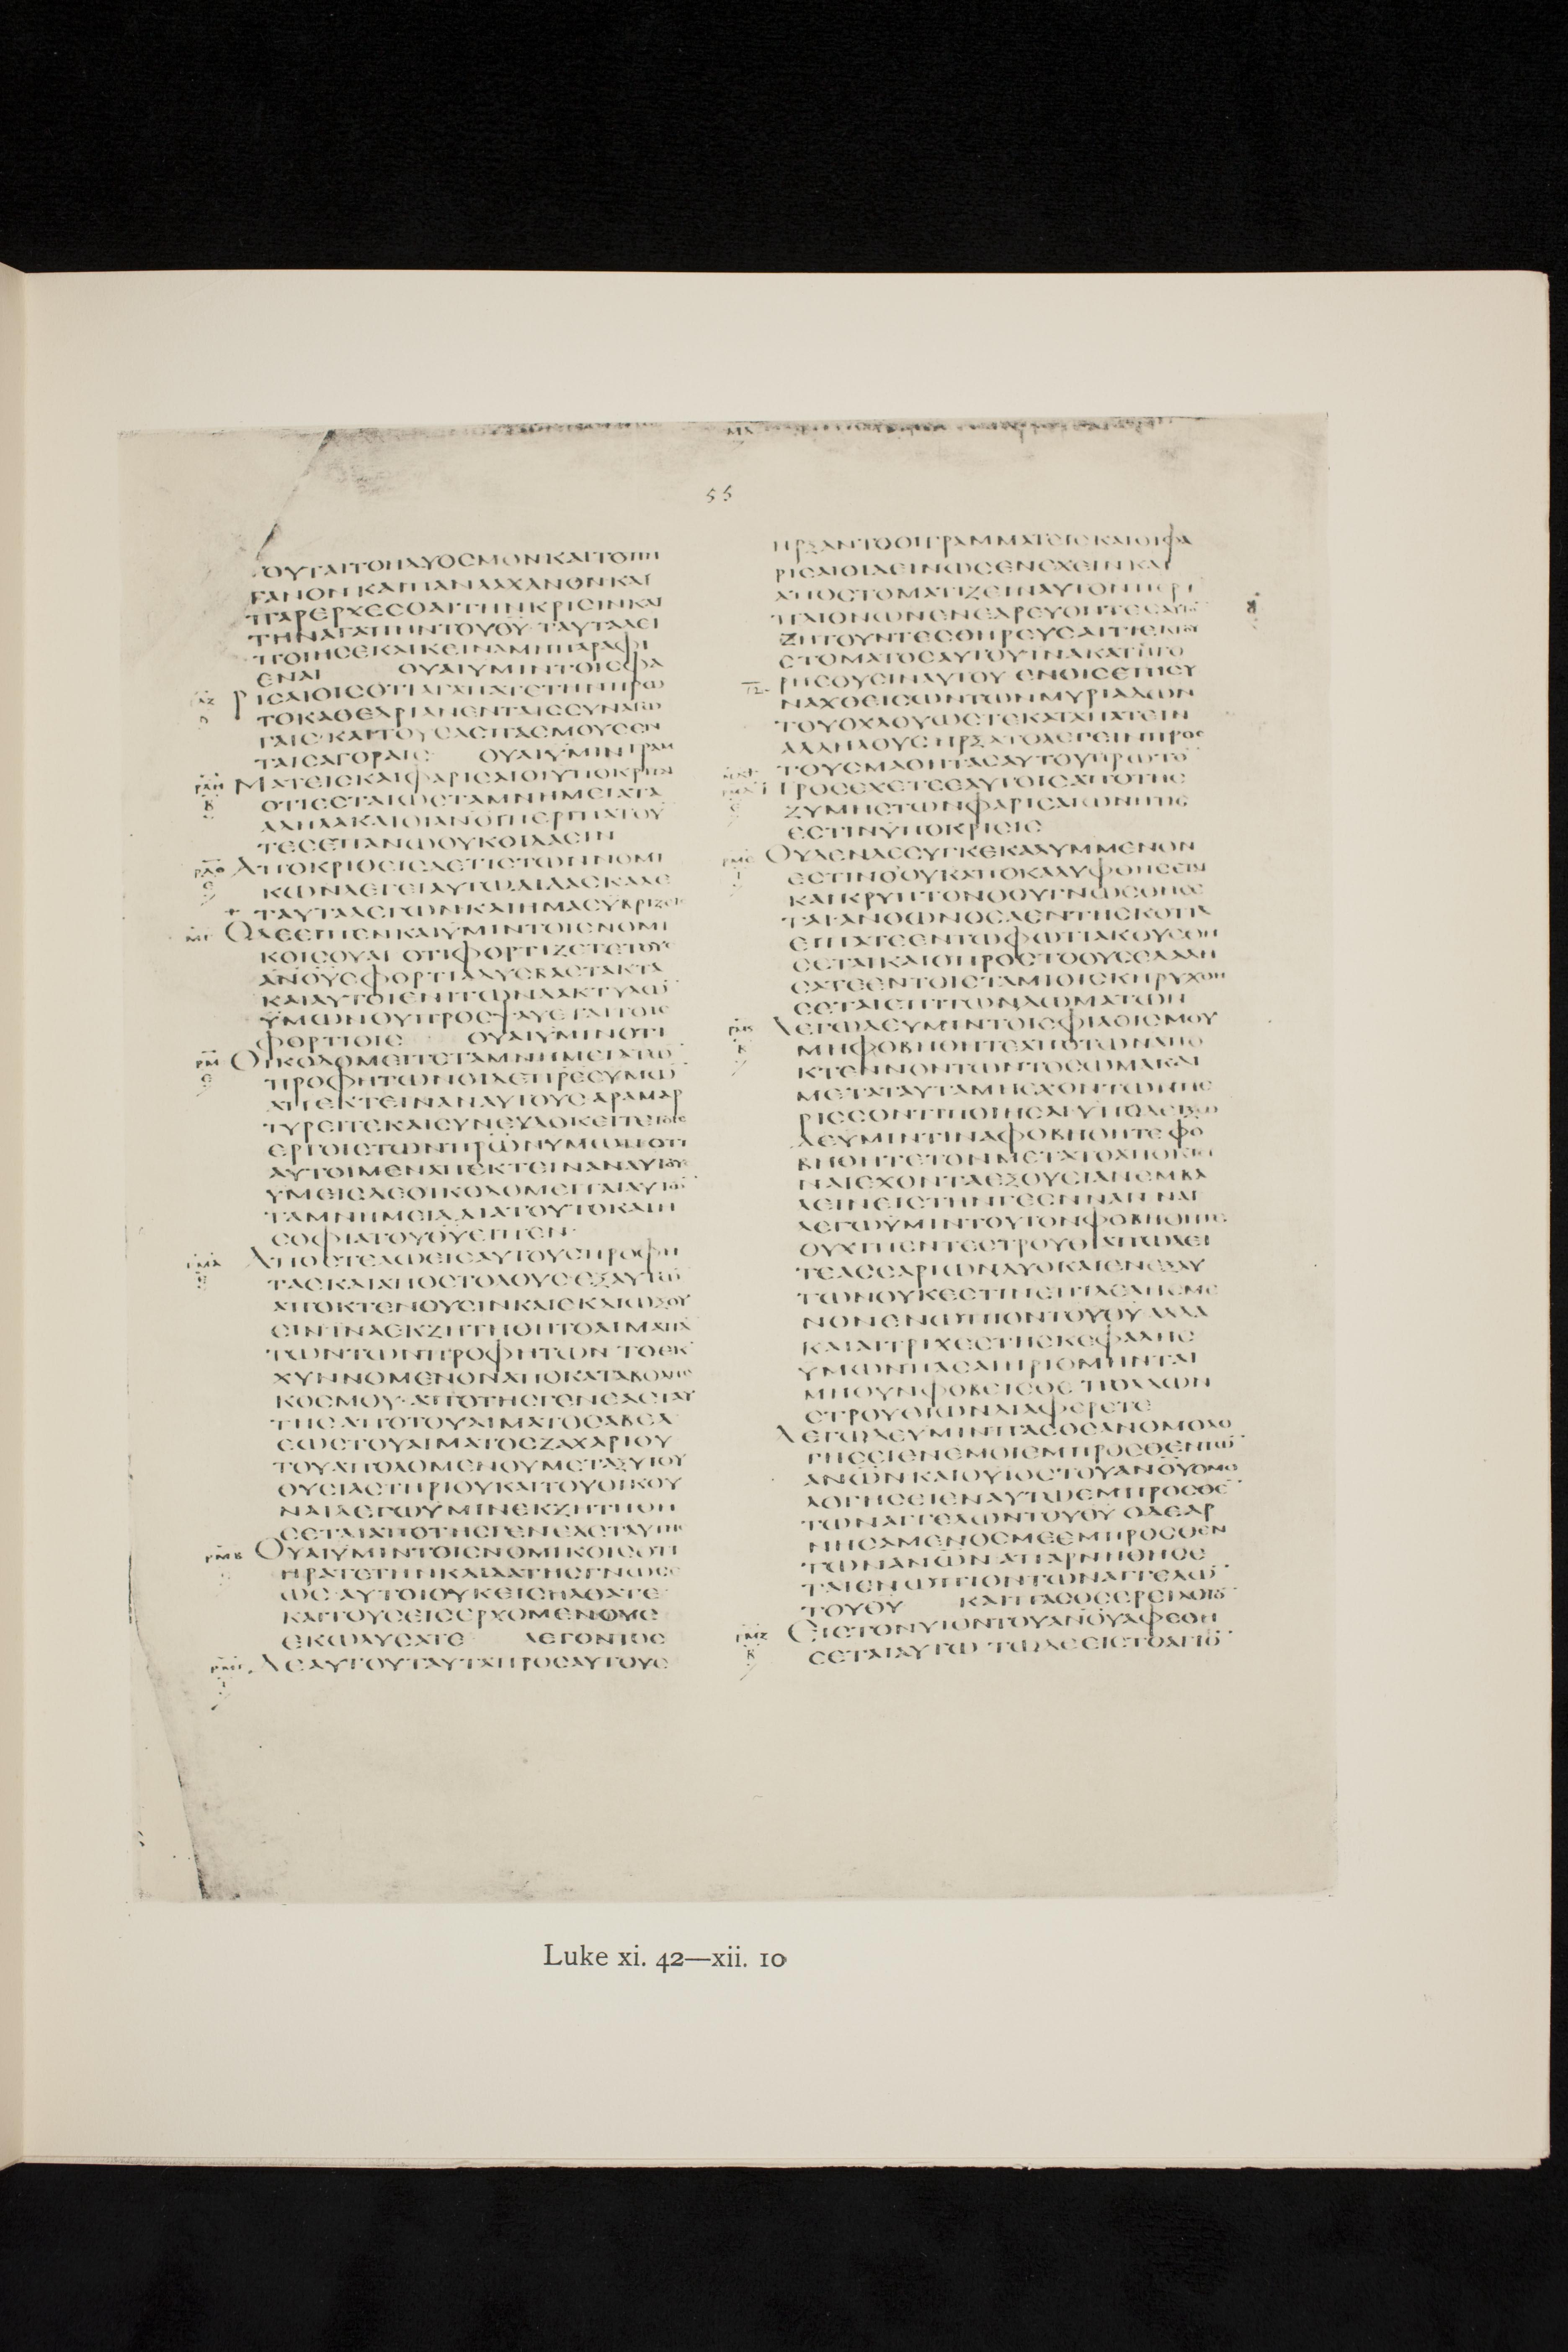 55
ΟΥΤΑΙΤΟΗΔΥΟΣΜΟΝΚΑΙΤΟΠΗ
ΓΑΝΟΝΚΑΙΠΑΝΛΑΧΑΝΟΝΚΑΙ
ΠΑΡΕΡΧΕΣΘΑΙΤΗΝΚΡΙΣΙΝΚΑΙ
ΤΗΝΑΓΑΠΗΝΤΟΥΘΥ ΤΑΥΤΑΔΕΙ
ΠΟΙΗΣΕΚΑΙΚΕΙΝΑΜΗΠΑΡΑΦΙ
ΕΝΑΙ ΟΥΑΙΥΜΙΝΤΟΙΣΦΑ
ΡΙΣΑΙΟΙΣΟΤΙΑΓΑΠΑΤΕΤΗΝΠΡΩ
ΤΟΚΑΘΕΔΡΙΑΝΕΝΤΑΙΣΣΥΝΑΓΩ
ΓΑΙΣ ΚΑΙΤΟΥΣΑΣΠΑΣΜΟΥΣΕΝ
ΤΑΙΣΑΓΟΡΑΙΣ ΟΥΑΙΥΜΙΝΓΡΑΜ
ΜΑΤΕΙΣΚΑΙΦΑΡΙΣΑΙΟΙΥΠΟΚΡΙΤΑΙ
ΟΤΙΕΣΤΑΙΩΣΤΑΜΝΗΜΕΙΑΤΑ
ΑΔΗΛΑΚΑΙΟΙΑΝΟΙΠΕΡΠΑΤΟΥ
ΤΕΣΕΠΑΝΩΟΥΚΟΙΔΑΣΙΝ
ΑΠΟΚΡΙΘΕΙΣΔΕΤΙΣΤΩΝΝΟΜΙ
ΚΩΝΛΕΓΕΙΑΥΤΩΔΙΔΑΣΚΑΛΕ
ΤΑΥΤΑΛΕΓΩΝΚΑΙΗΜΑΣΥΒΡΙΖΕΙΣ
ΟΔΕΕΙΠΕΝΚΑΙΥΜΙΝΤΟΙΣΝΟΜΙ
ΚΟΙΣΟΥΑΙ ΟΤΙΦΟΡΤΙΖΕΤΕΤΟΥΣ
ΑΝΟΥΣΦΟΡΤΙΑΔΥΣΒΑΣΤΑΚΤΑ
ΚΑΙΑΥΤΟΙΕΝΙΤΩΝΔΑΚΤΥΛΩ
ΥΜΩΝΟΥΠΡΟΣΨΑΥΕΤΑΙΤΟΙΣ
ΦΟΡΤΙΟΙΣ ΟΥΑΙΥΜΙΝΟΤΙ
ΟΙΚΟΔΟΜΕΙΤΕΤΑΜΝΗΜΕΙΑΤΩ
ΠΡΟΦΗΤΩΝΟΙΔΕΠΡΕΣΥΜΩ
ΑΠΕΚΤΕΙΝΑΝΑΥΤΟΥΣ ΑΡΑΜΑΡ
ΤΥΡΕΙΤΕΚΑΙΣΥΝΕΥΔΟΚΕΙΤΕΤΟΙΣ
ΕΡΓΟΙΣΤΩΝΠΡΩΝΥΜΩΝΟΤΙ
ΑΥΤΟΙΜΕΝΑΠΕΚΤΕΙΝΑΝΑΥΤΟΥΣ
ΥΜΕΙΣΔΕΟΙΚΟΔΟΜΕΙΤΑΙΑΥΤΩ
ΤΑΜΝΗΜΕΙΑΔΙΑΤΟΥΤΟΚΑΙΗ
ΣΟΦΙΑΤΟΥΘΥΕΙΠΕΝ
ΑΠΟΣΤΕΛΩΕΙΣΑΥΤΟΥΣΠΡΟΦΗ
ΤΑΣΚΑΙΑΠΟΣΤΟΛΟΥΣΕΞΑΥΤΩ
ΑΠΟΚΤΕΝΟΥΣΙΝΚΑΙΕΚΔΙΩΞΟΥ
ΣΙΝΙΝΑΕΚΖΗΤΗΘΗΤΟΑΙΜΑΠΑ
ΤΩΝΤΩΝΠΡΟΦΗΤΩΝ ΤΟΕΚ
ΧΥΝΝΟΜΕΝΟΝΑΠΟΚΑΤΑΒΟΛΗΣ
ΚΟΣΜΟΥ ΑΠΟΤΗΣΓΕΝΕΑΣΤΑΥ
ΤΗΣΑΠΟΤΟΥΑΙΜΑΤΟΣΑΒΕΛ
ΕΩΣΤΟΥΑΙΜΑΤΟΣΖΑΧΑΡΙΟΥ
ΤΟΥΑΠΟΛΟΜΕΝΟΥΜΕΤΑΞΥΤΟΥ
ΘΥΣΙΑΣΤΗΡΙΟΥΚΑΙΤΟΥΟΙΚΟΥ
ΝΑΙΛΕΓΩΥΜΙΝΕΚΖΗΤΗΘΗ
ΣΕΤΑΙΑΠΟΤΗΣΓΕΝΕΑΣΤΑΥΤΗΣ
ΟΥΑΙΥΜΙΝΤΟΙΣΝΟΜΙΚΟΙΣΟΤΙ
ΗΡΑΤΕΤΗΝΚΛΙΔΑΤΗΣΓΝΩΣΕ
ΩΣ ΑΥΤΟΙΟΥΚΕΙΣΗΛΘΑΤΕ
ΚΑΙΤΟΥΣΕΙΣΕΡΧΟΜΕΝΟΥΣ
ΕΚΩΛΥΣΑΤΕ ΛΕΓΟΝΤΟΣ
ΔΕΑΥΤΟΥΤΑΥΤΑΠΡΟΣΑΥΤΟΥΣ
ΗΡΞΑΝΤΟΟΙΓΡΑΜΜΑΤΕΙΣΚΑΙΟΙΦΑ
ΡΙΣΑΙΟΙΔΕΙΝΩΣΕΝΕΧΕΙΝΚΑΙ
ΑΠΟΣΤΟΜΑΤΙΖΕΙΝΑΥΤΟΝΠΕΡΙ
ΠΛΙΟΝΩΝΕΝΕΔΡΕΥΟΝΤΕΣΑΥΤΟ
ΖΗΤΟΥΝΤΕΣΘΗΡΕΥΣΑΙΤΙΕΚΤΟΥ
ΣΤΟΜΑΤΟΣΑΥΤΟΥΙΝΑΚΑΤΗΓΟ
ΡΗΣΟΥΣΙΝΑΥΤΟΥ ΕΝΟΙΣΕΠΙΣΥ
ΝΑΧΘΕΙΣΩΝΤΩΝΜΥΡΙΑΔΩΝ
ΤΟΥΟΧΛΟΥΩΣΤΕΚΑΤΑΠΑΤΕΙΝ
ΑΛΛΗΛΟΥΣ ΗΡΞΑΤΟΛΕΓΕΙΝΠΡΟΣ
ΤΟΥΣΜΑΘΗΤΑΣΑΥΤΟΥΠΡΩΤΟ
ΠΡΟΣΕΧΕΤΕΕΑΥΤΟΙΣΑΠΟΤΗΣ
ΖΥΜΗΣΤΩΝΦΑΡΙΣΑΙΩΝΗΤΙΣ
ΕΣΤΙΝΥΠΟΚΡΙΣΙΣ
ΟΥΔΕΝΔΕΣΥΓΚΕΚΑΛΥΜΜΕΝΟΝ
ΕΣΤΙΝΟΟΥΚΑΠΟΚΑΛΥΦΘΗΣΕΤΑΙ
ΚΑΙΚΡΥΠΤΟΝΟΟΥΓΝΩΣΘΗΣΕ
ΤΑΙΑΝΘΩΝΟΣΑΕΝΤΗΣΚΟΤΙΑ
ΕΙΠΑΤΕΕΝΤΩΦΩΤΙΑΚΟΥΣΘΗ
ΣΕΤΑΙΚΑΙΟΠΡΟΣΤΟΟΥΣΕΛΑΛΗ
ΣΑΤΕΕΝΤΟΙΣΤΑΜΙΟΙΣΚΗΡΥΧΘΗ
ΣΕΤΑΙΕΠΙΤΩΝΔΩΜΑΤΩΝ
ΛΕΓΩΔΕΥΜΙΝΤΟΙΣΦΙΛΟΙΣΜΟΥ
ΜΗΦΟΒΗΘΗΤΕΑΠΟΤΩΝΑΠΟ
ΚΤΕΝΝΟΝΤΩΝΤΟΣΩΜΑΚΑΙ
ΜΕΤΑΤΑΥΤΑΜΗΕΧΟΝΤΩΝΠΕ
ΡΙΣΣΟΝΤΙΠΟΙΗΣΑΙΥΠΟΔΕΙΞΩ
ΔΕΥΜΙΝΤΙΝΑΦΟΒΗΘΗΤΕ ΦΟ
ΒΗΘΗΤΕΤΟΝΜΕΤΑΤΟΑΠΟΚΤΙ
ΝΑΙΕΧΟΝΤΑΕΞΟΥΣΙΑΝΕΜΒΑ
ΛΕΙΝΕΙΣΤΗΝΓΕΕΝΝΑΝ ΝΑΙ
ΛΕΓΩΥΜΙΝΤΟΥΤΟΝΦΟΒΗΘΗΤΕ
ΟΥΧΙΠΕΝΤΕΣΤΡΟΥΘΙΑΠΩΛΕΙ
ΤΕΑΣΣΑΡΙΩΝΔΥΟΚΑΙΕΝΕΞΑΥ
ΤΩΝΟΥΚΕΣΤΙΝΕΠΙΛΕΛΗΣΜΕ
ΝΟΝΕΝΩΠΙΟΝΤΟΥΘΥ ΑΛΛΑ
ΚΑΙΑΙΤΡΙΧΕΣΤΗΣΚΕΦΑΛΗΣ
ΥΜΩΝΠΑΣΑΙΗΡΙΘΜΗΝΤΑΙ
ΜΗΟΥΝΦΟΒΕΙΣΘΕ ΠΟΛΛΩΝ
ΣΤΡΟΥΘΙΩΝΔΙΑΦΕΡΕΤΕ
ΛΕΓΩΔΕΥΜΙΝΠΑΣΟΣΑΝΟΜΟΛΟ
ΓΗΣΕΙΕΝΕΜΟΙΕΜΠΡΟΣΘΕΝΤΩ
ΑΝΩΝΚΑΙΟΥΙΟΣΤΟΥΑΝΟΥΟΜΟ
ΛΟΓΗΣΕΙΕΝΑΥΤΩΕΜΠΡΟΣΘΕ
ΤΩΝΑΓΓΕΛΩΝΤΟΥΘΥ ΟΔΕΑΡ
ΝΗΣΑΜΕΝΟΣΜΕΕΜΠΡΟΣΘΕΝ
ΤΩΝΑΝΩΝΑΠΑΡΝΗΘΗΣΕ
ΤΑΙΕΝΩΠΙΟΝΤΩΝΑΓΓΕΛΩ
ΤΟΥΘΥ ΚΑΙΠΑΣΟΣΕΡΕΙΛΟΓΟ
ΕΙΣΤΟΝΥΙΟΝΤΟΥΑΝΟΥΑΦΕΘΗ
ΣΕΤΑΙΑΥΤΩ ΤΩΔΕΕΙΣΤΟΑΓΙΟ
Luke xi. 42—xii. 10